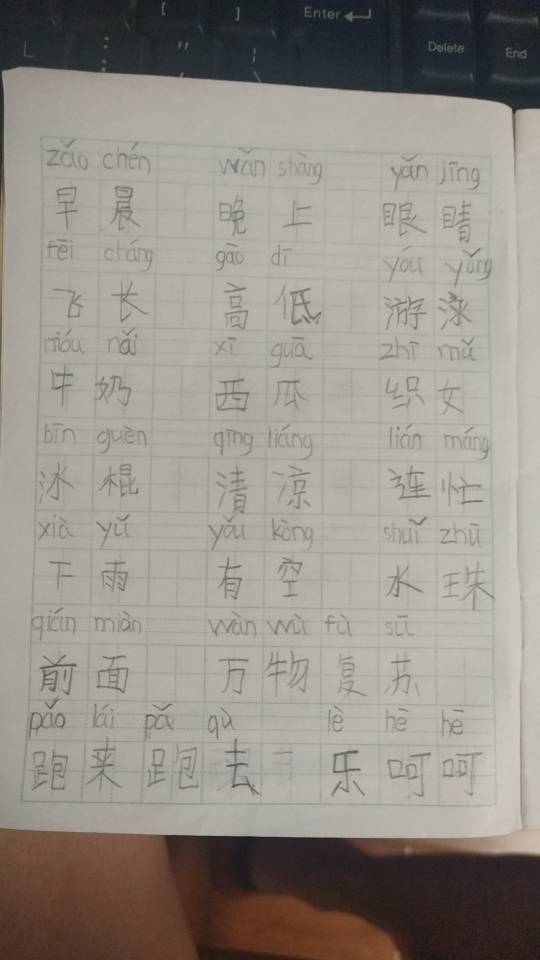 Enter
Delete
End
zǎo chén wǎn shàng yǎn jīng
早晨 晚上 眼睛
fēi cháng gāo dī yóu yǒng
飞长 高低 游泳
nióu nǎi xī guā zhī nǚ
牛奶 西瓜 织女
bīn guèn qīng liáng lián máng
冰棍 清凉 连忙
xià yǔ yǒu kòng shuǐ zhū
下雨 有空 水珠
qián miàn wàn wù fù sū
前面 万物复苏
pǎo lái pǎ qù lè hē hē
跑来跑去 乐呵呵